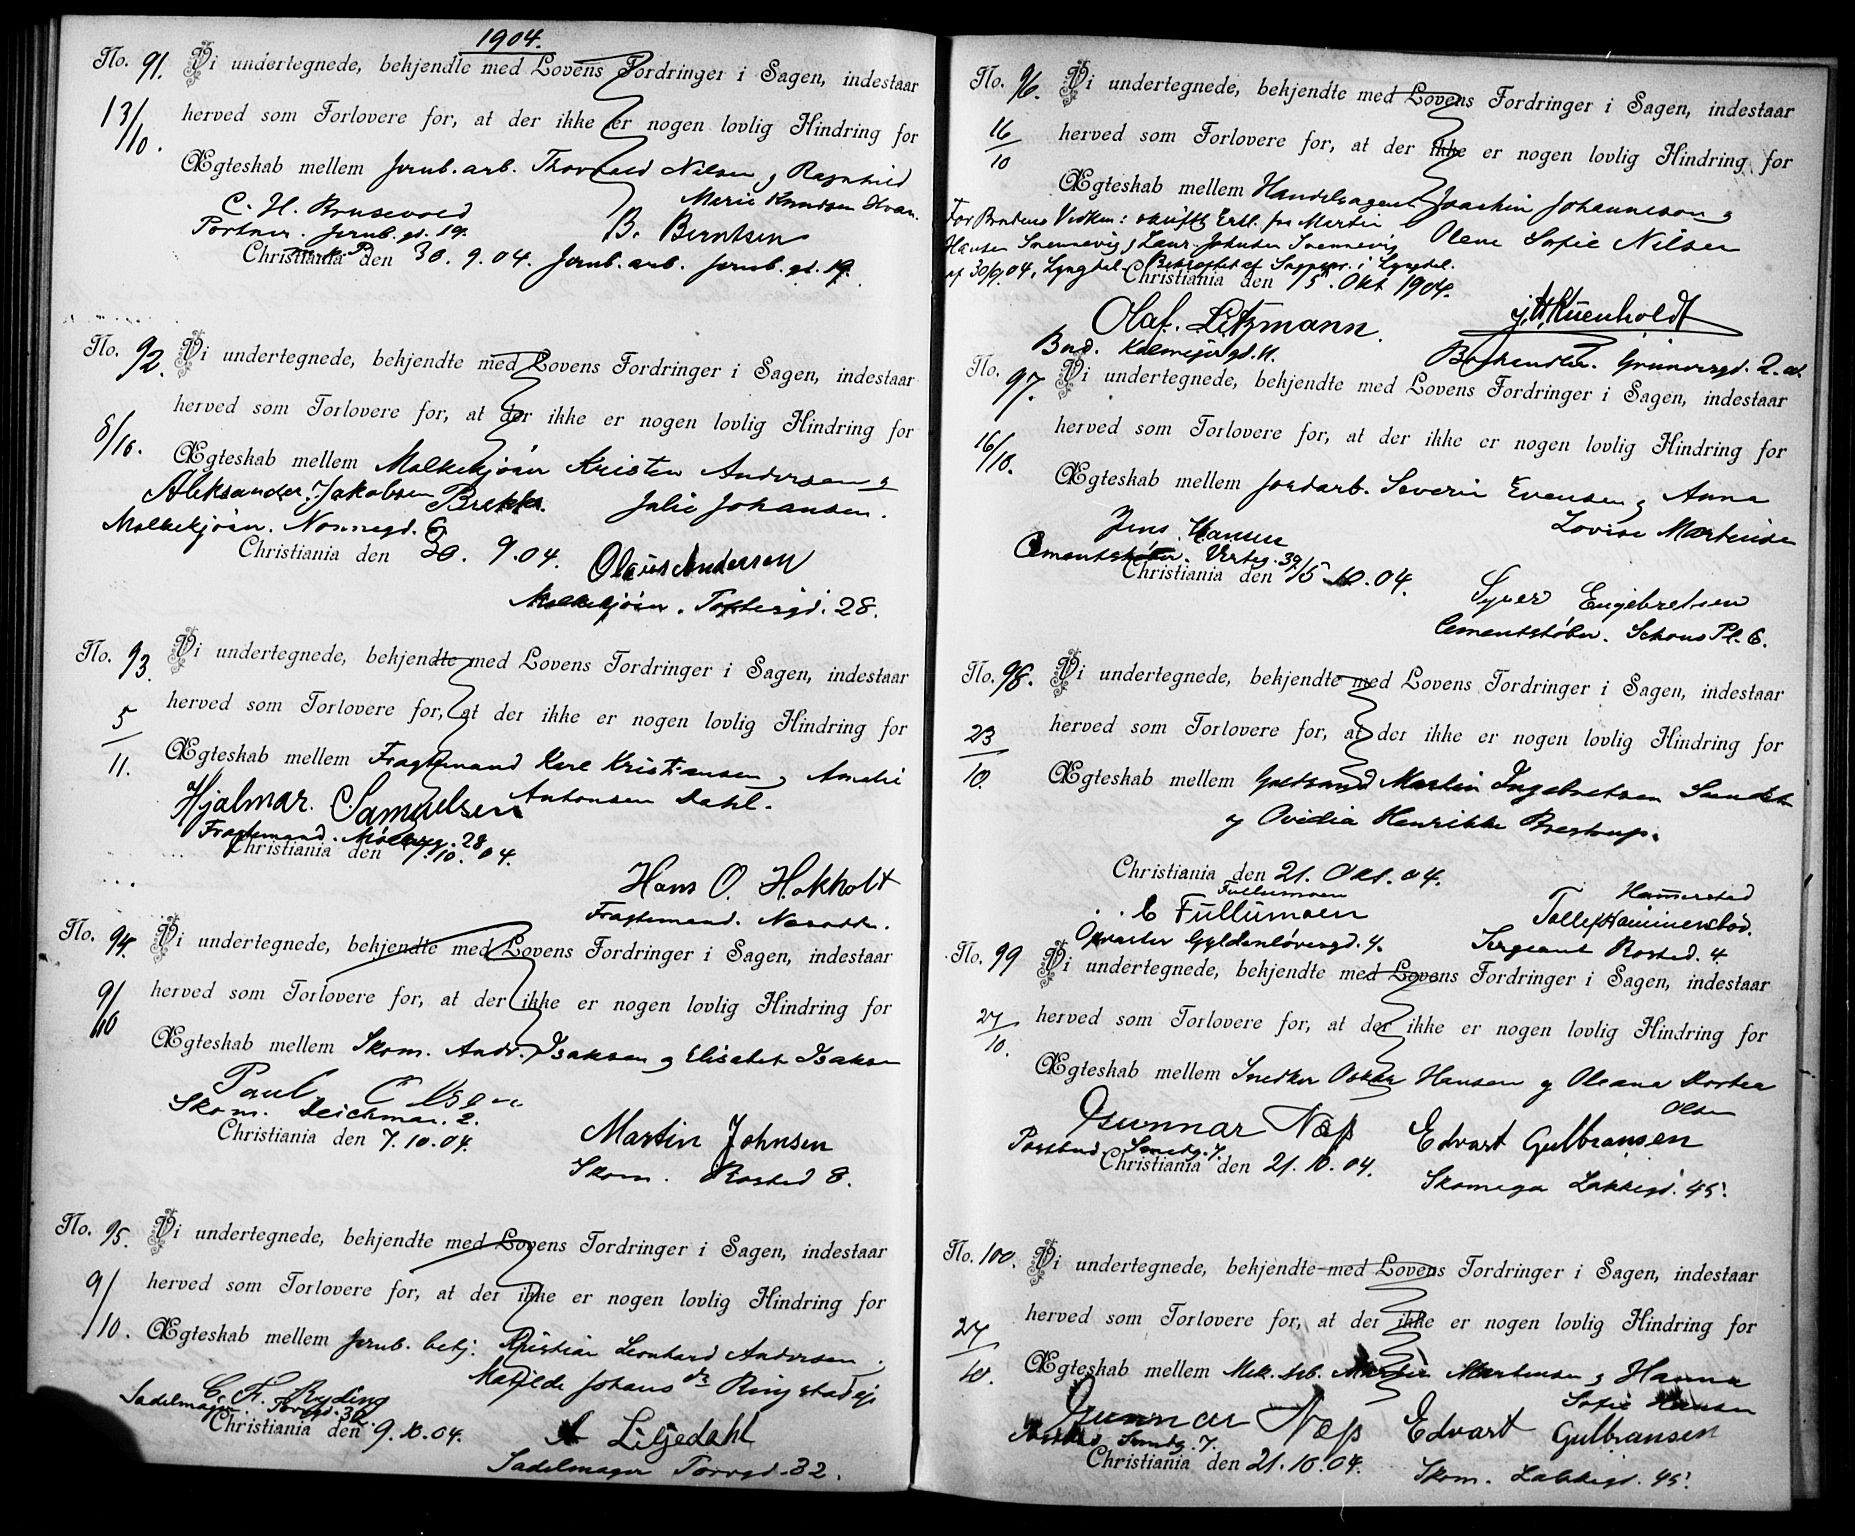 1904.
No. 91. Vi undertegnede, bekjendte med Lovens Fordringer i Sagen, indestaar
13/10. herved som Forlovere for, at der ikke er nogen lovlig Hindring for
Ægteskab mellem Jernb. arb. Thorvald Nilsen og Ragnhild
Marie Knudsen
C. H. Brusevold
Portner. Jernb. gd. 19. B. Berntsen
Christiania den 30. 9. 04. Jernb. arb. Jernb. gd. 19.
No. 92. Vi undertegnede, bekjendte med Lovens Fordringer i Sagen, indestaar
8/10. herved som Forlovere for, at der ikke er nogen lovlig Hindring for
Ægteskab mellem Melkekjører Kristen Andersen og
Aleksander Jakobsen Brekke. Julie Johansen.
Melkekjører. Nonnegd. 6
Christiania den 30. 9. 04. Olaus Andersen
Melkekjører. Toftesgd. 28.
No. 93. Vi undertegnede, bekjendte med Lovens Fordringer i Sagen, indestaar
5/11. herved som Forlovere for, at der ikke er nogen lovlig Hindring for
Ægteskab mellem Fragtemand Karl Kristiansen og Amalie
Antonsen Dahl.
Hjalmar. C. Samuelsen
Fragtemand. 28
Christiania den 7. 10. 04.
Hans O. Hokholt
Fragtemand.
No. 94. Vi undertegnede, bekjendte med Lovens Fordringer i Sagen, indestaar
9/10 herved som Forlovere for, at der ikke er nogen lovlig Hindring for
Ægteskab mellem Skom. Andr. Isaksen og Elisabet Isaksen
Paul Olsen
Skom. Deichman. 2.
Christiania den 7. 10. 04. Martin Johnsen
Skom. Rosted 8.
No. 95. Vi undertegnede, bekjendte med Lovens Fordringer i Sagen, indestaar
9/10. herved som Forlovere for, at der ikke er nogen lovlig Hindring for
Ægteskab mellem Jernb. betj. Kristian Leonhard Andersen
Matilde Johans dr Ringstad
C. F. Ryding
Sadelmager. Torvgd. 32.
Christiania den 9. 10. 04. A Liljedahl
Sadelmager Torvgd. 32.
No. 96. Vi undertegnede, bekjendte med Lovens Fordringer i Sagen, indestaar
16/10 herved som Forlovere for, at der ikke er nogen lovlig Hindring for
Ægteskab mellem Handelsagent Joachim Johannesen og
Olene Sofie Nilsen
For Brudens Vedkom: skriftl Erkl. fra Martin
Hansen Svennevig og Laur. Johnsen Svennevig
af 30/9 04, Lyngdal. Bekræftet af Sogneprr. i Lyngdal.
Christiania den 15. Okt 1904.
Olaf. Litzmann. J. H. Kuenholdt
Bud. 11. Boghandler. Grünersgd. 2.
No. 97. Vi undertegnede, bekjendte med Lovens Fordringer i Sagen, indestaar
16/10. herved som Forlovere for, at der ikke er nogen lovlig Hindring for
Ægteskab mellem Jordarb. Severin Evensen og Anna
Lovise Martinsen
Jens. Hansen
Cementstøber. 39.
Christiania den 15. 10. 04. Syver Engebretsen
Cementstøber. Schous Pl. 6.
No. 98. Vi undertegnede, bekjendte med Lovens Fordringer i Sagen, indestaar
23/10. herved som Forlovere for, at der ikke er nogen lovlig Hindring for
Ægteskab mellem Martin Ingebretsen
og Ovidia Henrikke
Christiania den 21. Okt. 04.
Fullumoen Hammerstad
C Fullumoen Tollef Hammerstad.
Gyldenløvesgd. 4. Sergeant Rosted. 4
No. 99 Vi undertegnede, bekjendte med Lovens Fordringer i Sagen, indestaar
27/10. herved som Forlovere for, at der ikke er nogen lovlig Hindring for
Ægteskab mellem Snedker Oskar Hansen og Oleana Dortea
Olsen
Gunnar Næss Edvart Gulbransen
Postbud Smedg. 7.
Christiania den 21. 10. 04. Skomager Lakkegd. 45.
No. 100. Vi undertegnede, bekjendte med Lovens Fordringer i Sagen, indestaar
27/10. herved som Forlovere for, at der ikke er nogen lovlig Hindring for
Ægteskab mellem Mek. arb. Martin Martinsen og Hanna
Sofie Hansen
Gunnar Næss Edvart Gulbransen
Postbud Smedg. 7.
Christiania den 21. 10. 04. Skom. Lakkegd. 45.